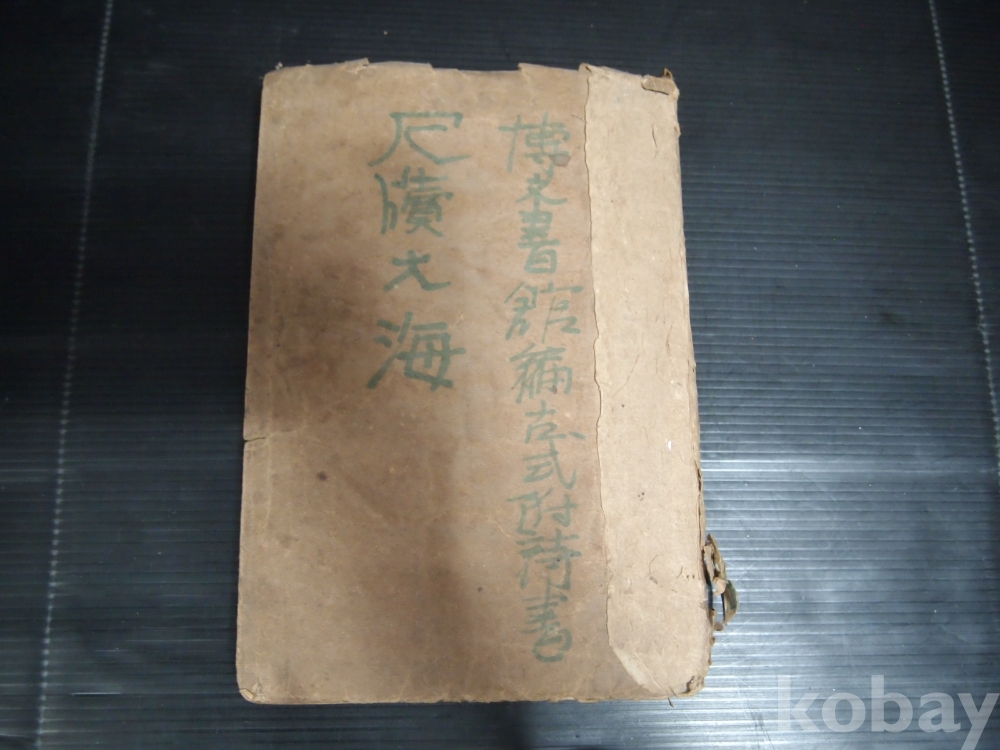 博文書館編古式附請書
尺牘大海
kobay